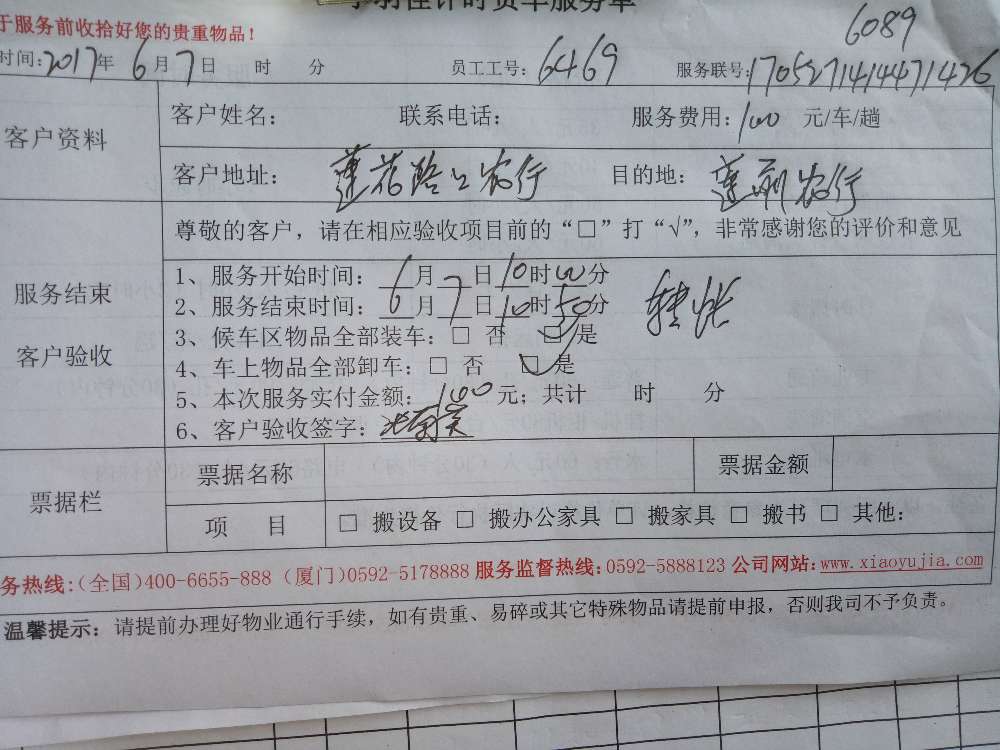 计时货车服务单
于服务前收拾好您的贵重物品！
6089
时间：2017年 6月7日 时 分 员工工号：6469 服务联号：1705271414471426
客户资料
客户姓名： 联系电话： 服务费用：100 元/车/趟
客户地址： 莲花路口农行 目的地： 莲前农行
尊敬的客户，请在相应验收项目前的“□”打“√”，非常感谢您的评价和意见
服务结束
客户验收
1、服务开始时间：6月7日10时00分
2、服务结束时间：6月7日10时50分
转账
3、候车区物品全部装车：□ 否 ☑ 是
4、车上物品全部卸车：□ 否 ☑ 是
5、本次服务实付金额：100元；共计 时 分
6、客户验收签字：
票据栏
票据名称 票据金额
项 目 □ 搬设备 □ 搬办公家具 □ 搬家具 □ 搬书 □ 其他：
务热线：（全国）400-6655-888（厦门）0592-5178888 服务监督热线：0592-5888123 公司网站：www.xiaoyujia.com
温馨提示：请提前办理好物业通行手续，如有贵重、易碎或其它特殊物品请提前申报，否则我司不予负责。